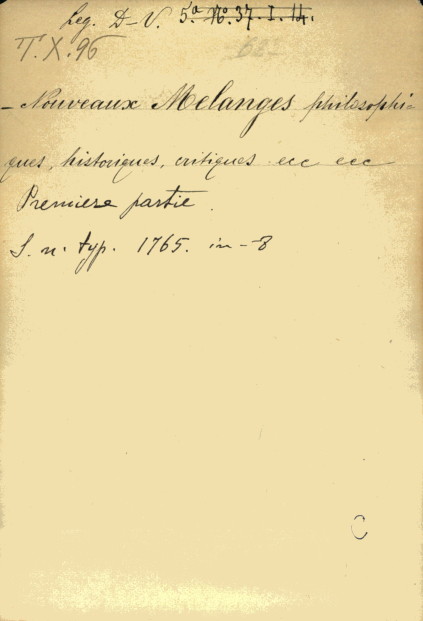 Leg. D-V. 5.ª Nº. 37. I. 14.
T.X.96
- Nouveaux Melanges philosophi-
ques, historiques, critiques ecc ecc
Premiere partie.
S. n. typ. 1765. in-8
C